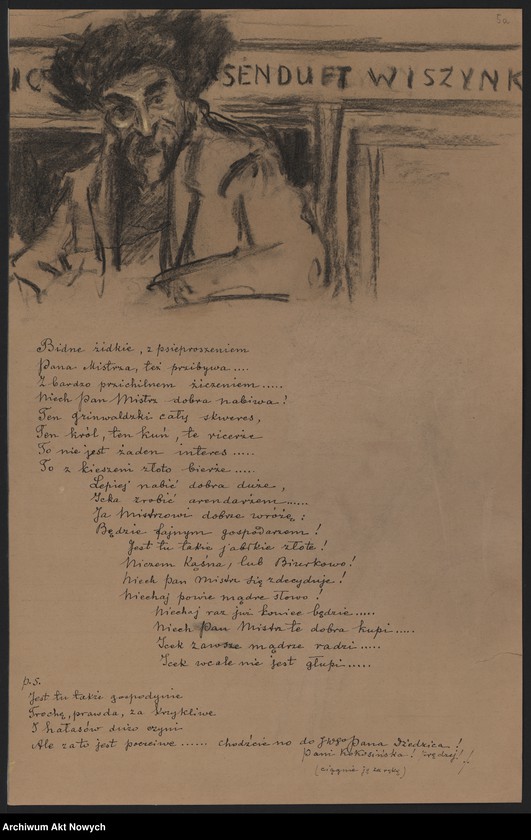 5a
IC SENDUFT WISZYNK
Bidne żidkie, z psieproszeniem
Pana Mistrza, też przibywa....
Z bardzo przichilnem życzeniem.....
Niech Pan Mistrz dobra nabiwa!
Ten Grinwaldzki cały skweres,
Ten król, ten kuń, te ricerże
To nie jest żaden interes.....
To z kieszeni złoto bierże.....
Lepiej nabić dobra duże,
Icka zrobić arendarżem......
Ja Mistrzowi dobrze wróżę:
Będzie fajnym gospodarzem!
Jest tu takie jabłkie złote!
Niczem Kąśna, lub Biurkowo!
Niech pan Mistrz się zdecyduje!
Niechaj powie mądre słowo!
Niechaj raz już koniec będzie.....
Niech Pan Mistrz te dobra kupi.....
Icek zawsze mądrze radzi.....
Icek wcale nie jest głupi.....
p.s.
Jest tu także gospodynie
Trochę, prawda, za krzykliwe
I hałasów dużo czyni
Ale za to jest poczciwe...... chodźcie no do Pana Dziedzica!
Pani Kokosińska! prędzej!!
(ciągnie ją za rękę)
Archiwum Akt Nowych